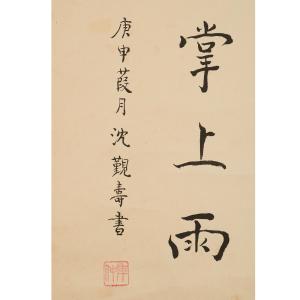 掌上雨
庚申葭月沈觐壽書